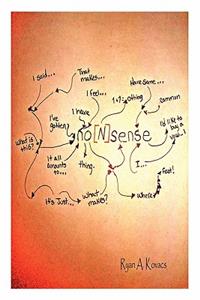 I said...
That
makes...
I feel...
Have some...
I've
gotten?
I have
1+1=
nothing
common
no[N]sense
I'd like to
buy a
vowel..!
What is
this?
It all
amounts
to...
thing.
I...
Feet!
It's Just...
What
makes?
Where?
Ryan A. Kovacs